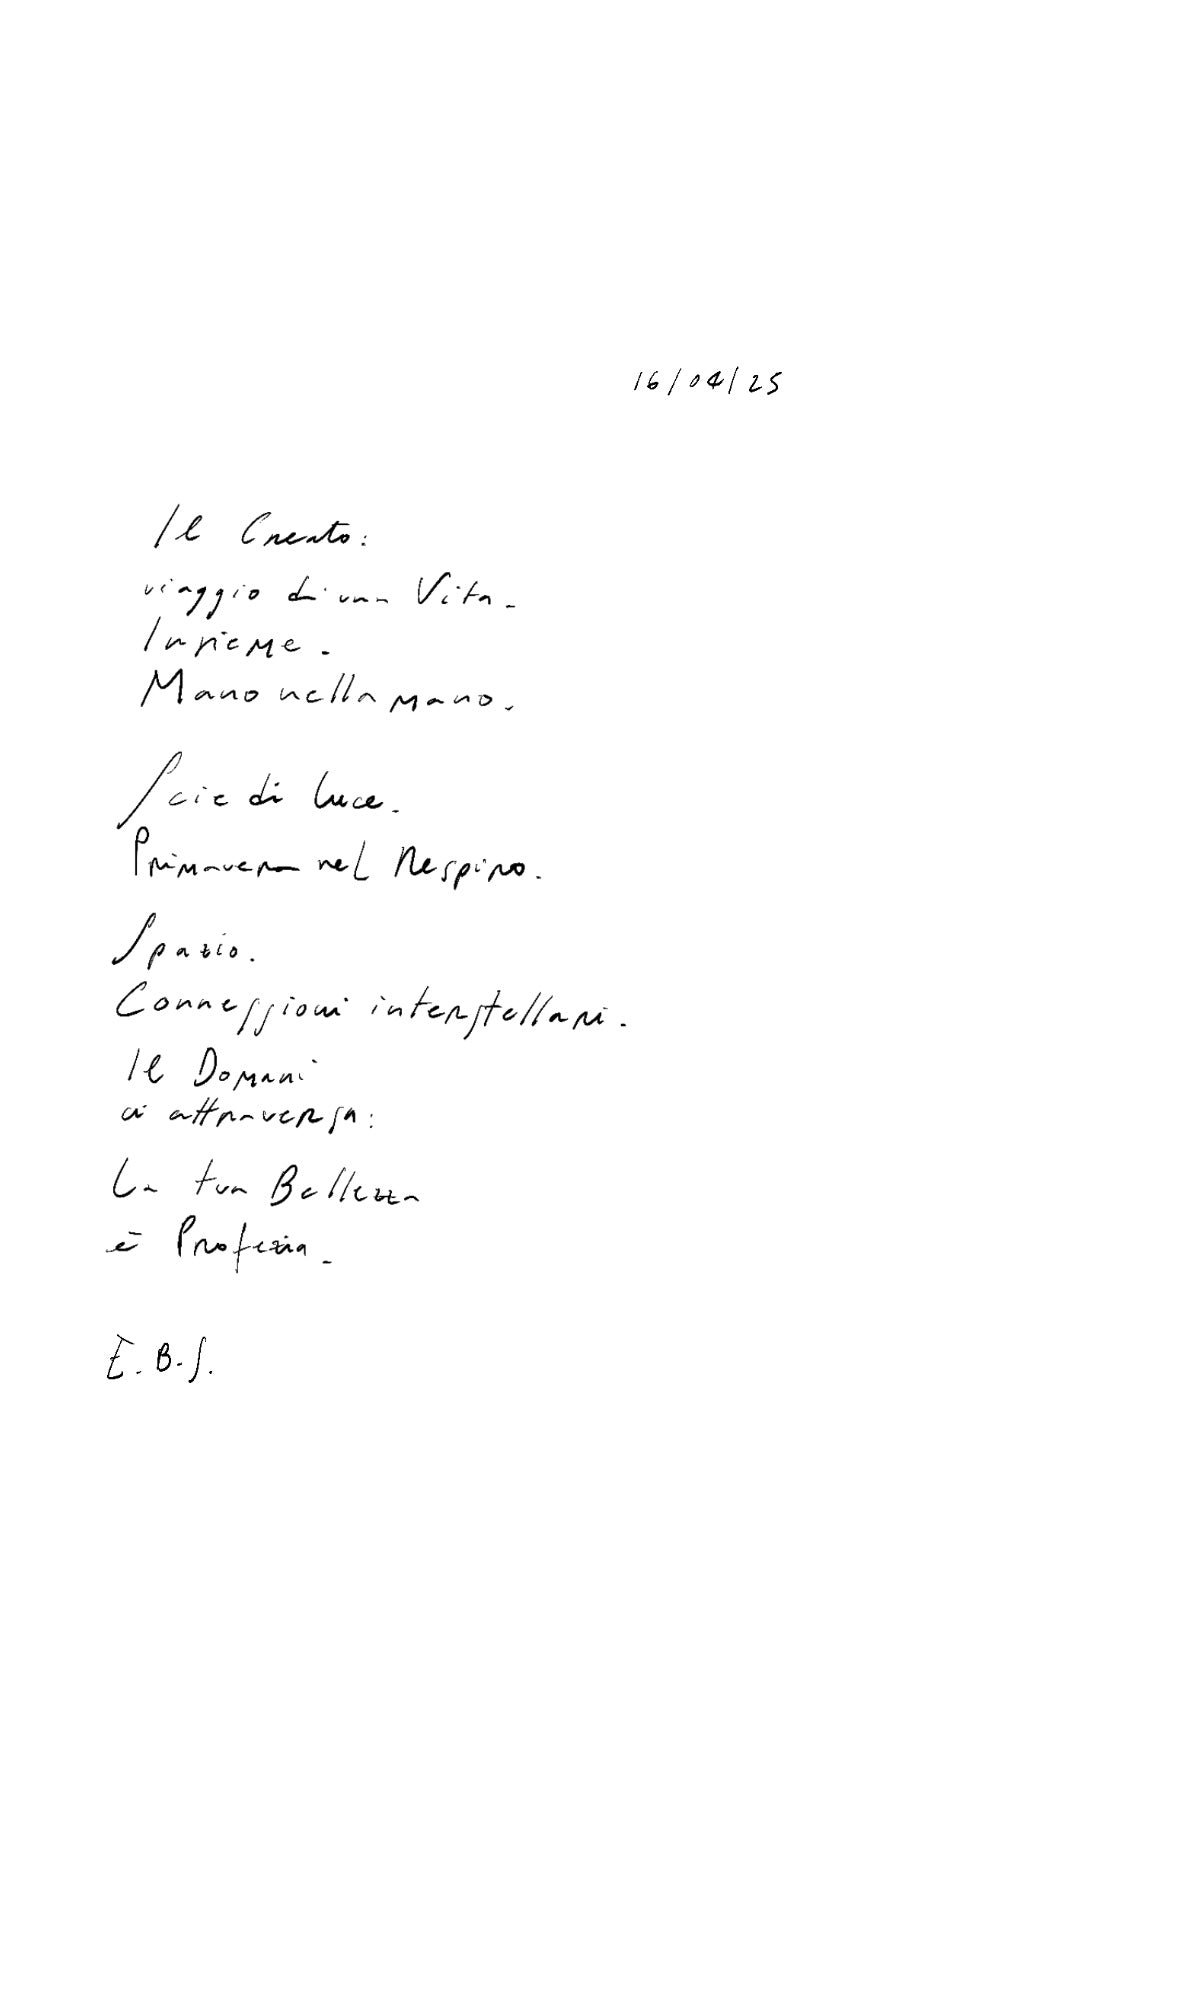 16/04/25
Il Creato:
viaggio di una Vita.
Insieme.
Mano nella mano.
Scie di luce.
Primavera nel Respiro.
Spazio.
Connessioni interstellari.
Il Domani
ci attraversa:
La tua Bellezza
è Profezia.
E.B.S.